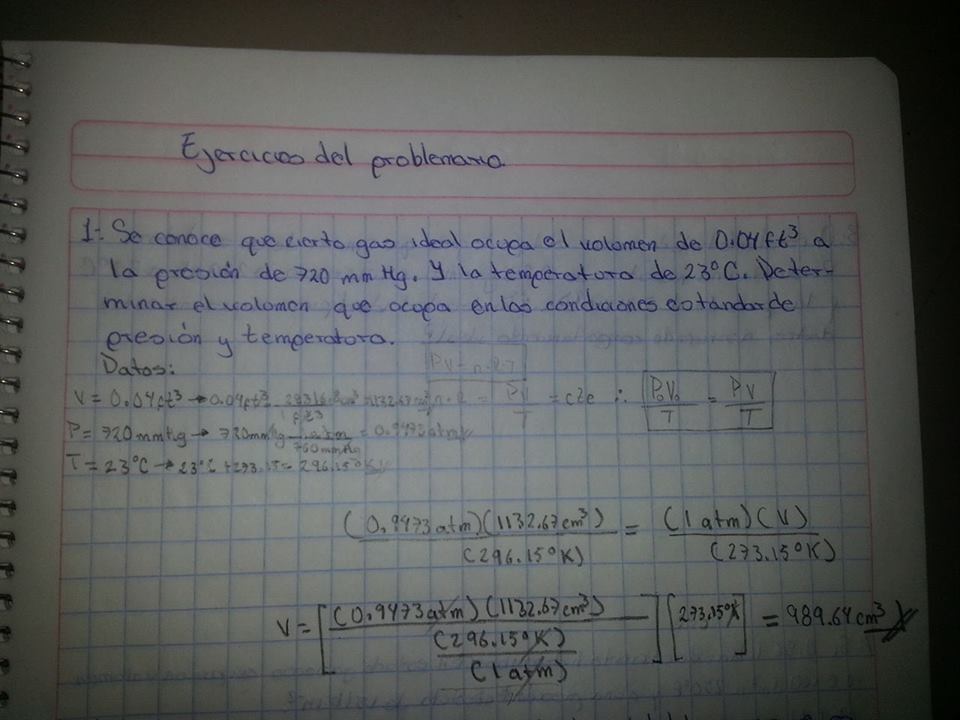 Ejercicios del problemario.
1.- Se conoce que cierto gas ideal ocupa el volumen de 0.04 ft³ a
la presión de 720 mm Hg. Y la temperatura de 23°C. Deter-
minar el volumen que ocupa en las condiciones estándar de
presión y temperatura.
Datos:
PV = n.R.T
V = 0.04 ft³ → 0.04 ft³ 1 ft³ = 1132.67 cm³ PV/T = cte ∴ P₀V₀/T = PV/T
P = 720 mmHg → 720 mmHg 1 atm/760 mmHg = 0.9473 atm
T = 23°C → 23°C + 273.15 = 296.15°K
(0.9473 atm)(1132.67 cm³)/(296.15°K) = (1 atm)(V)/(273.15°K)
V = [(0.9473 atm)(1132.67 cm³)/(296.15°K)/(1 atm)] [273.15°K] = 989.64 cm³